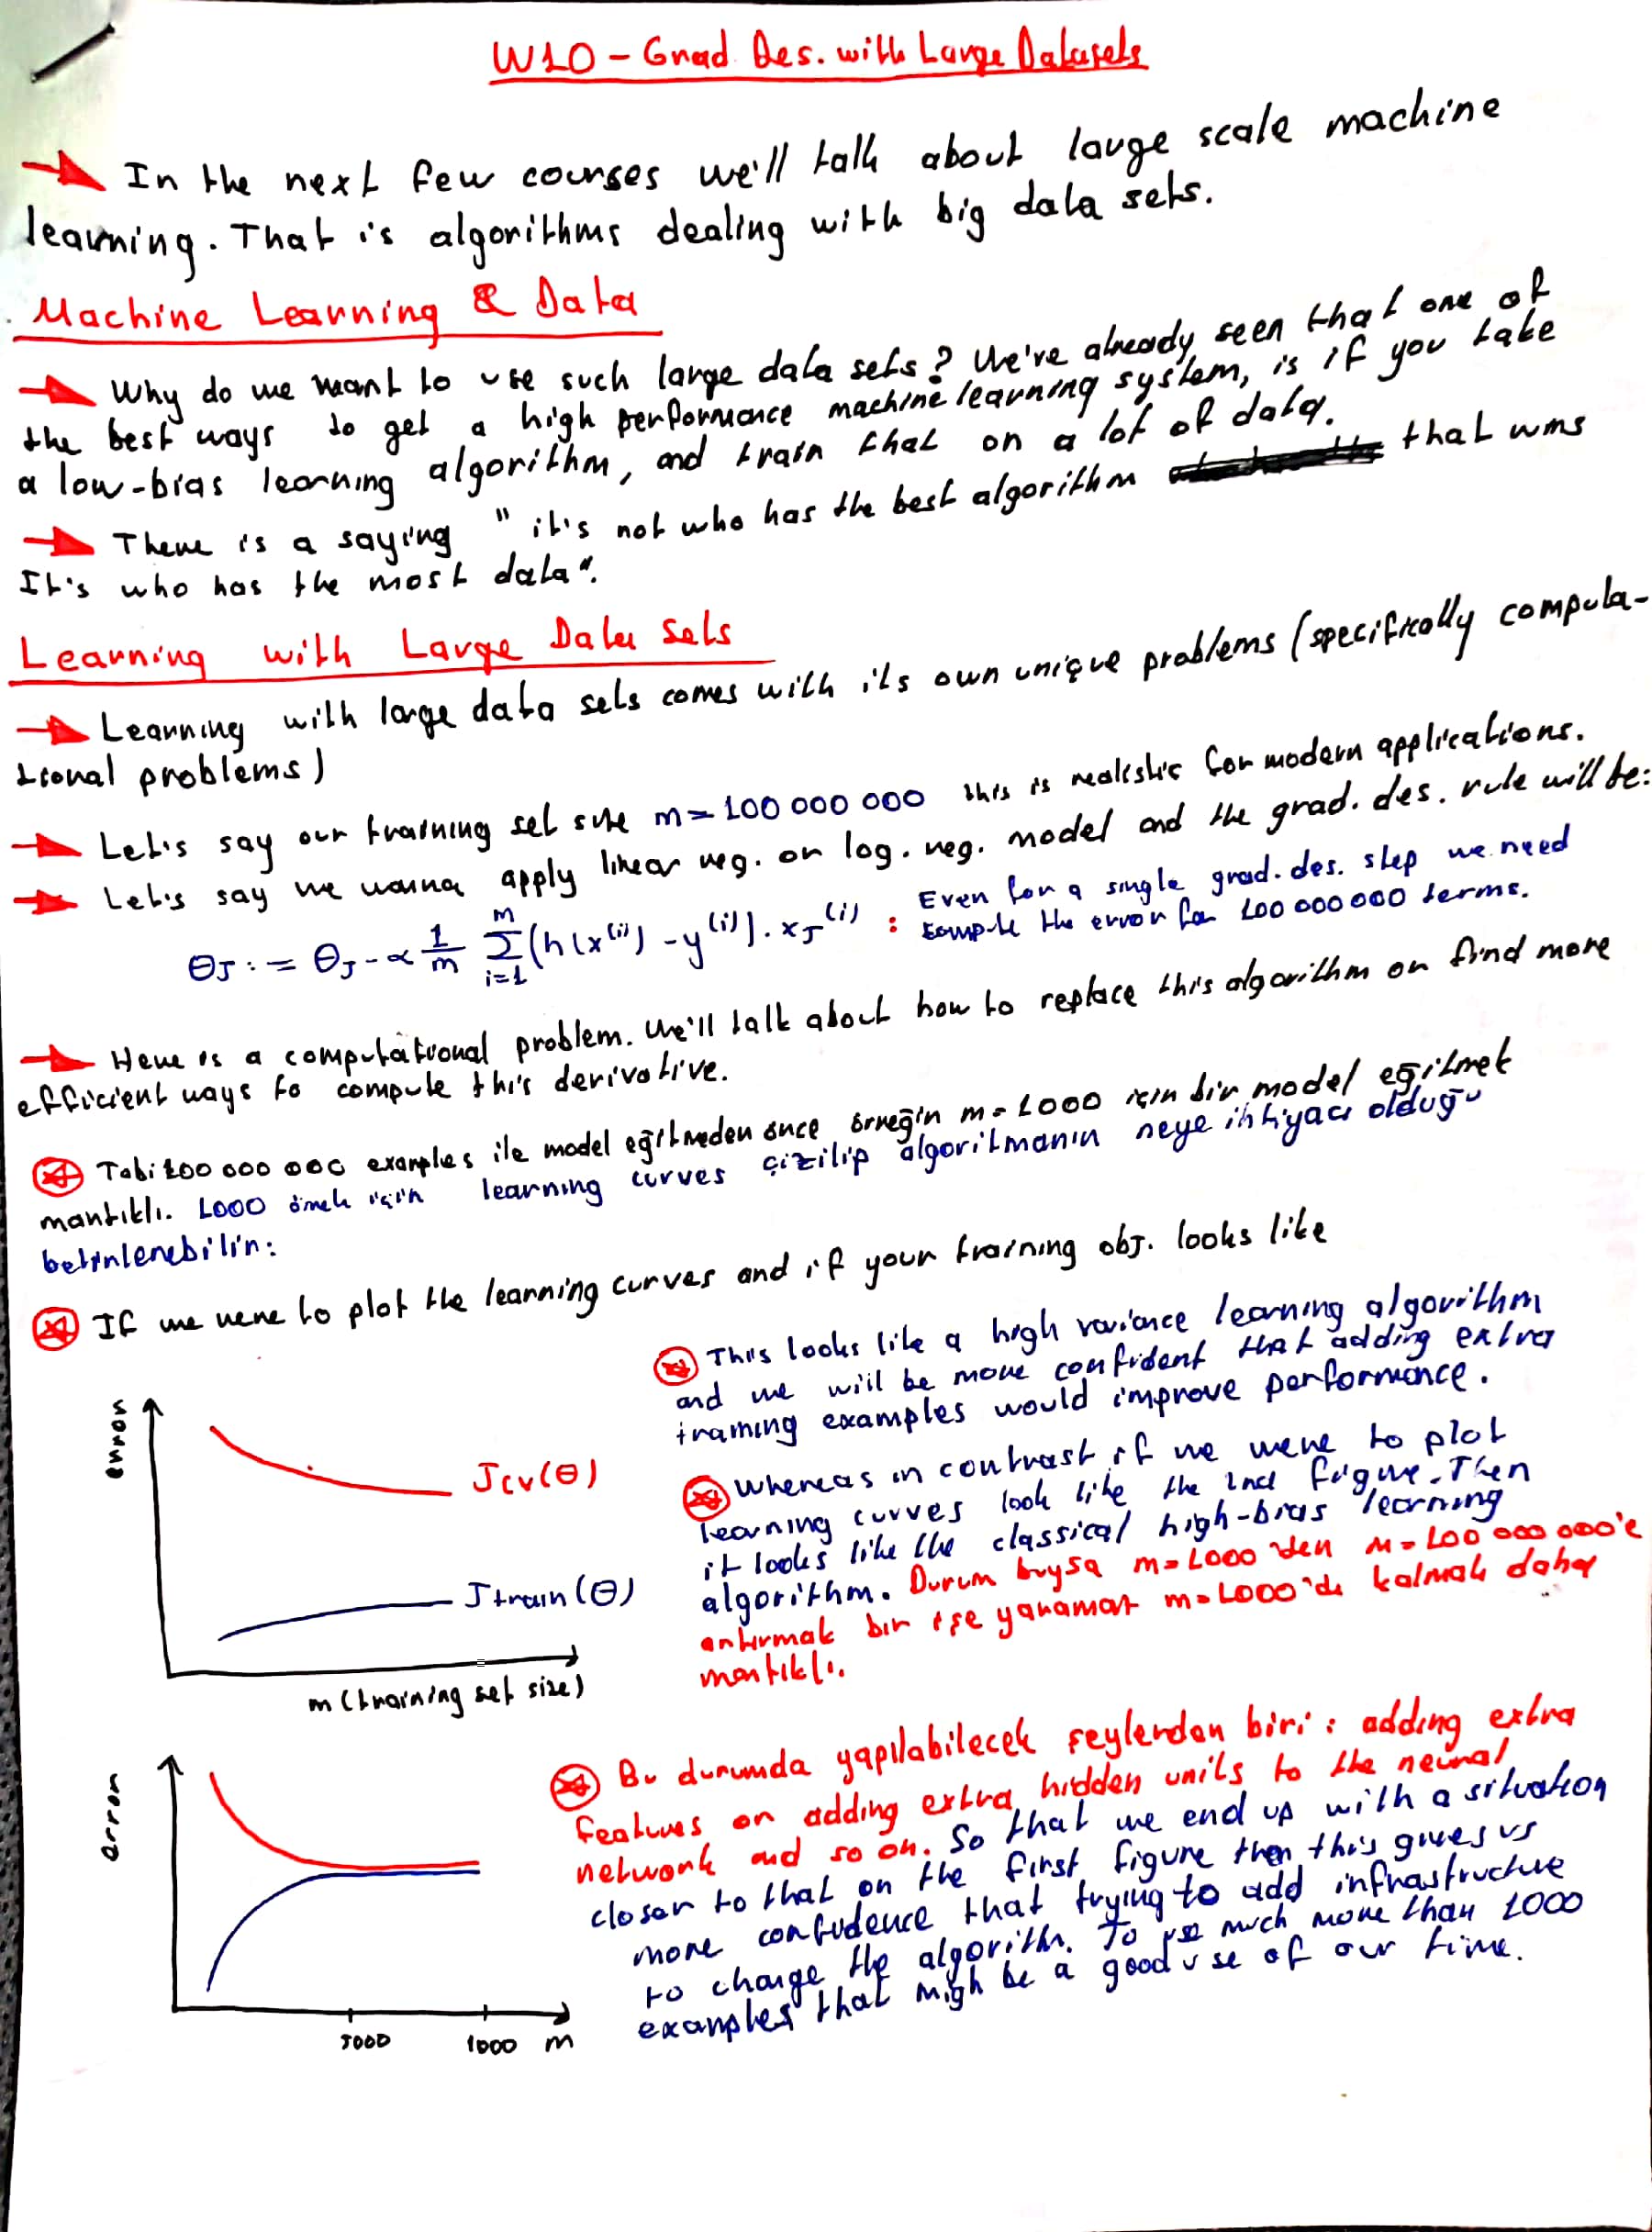 W10 - Grad Des. with Large Datasets
In the next few courses we'll talk about large scale machine
learning. That is algorithms dealing with big data sets.
Machine Learning & Data
Why do we want to use such large data sets? We've already seen that one of
the best ways to get a high performance machine learning system, is if you take
a low-bias learning algorithm, and train that on a lot of data.
There is a saying "it's not who has the best algorithm that wins
It's who has the most data".
Learning with Large Data Sets
Learning with large data sets comes with its own unique problems (specifically computa-
tional problems)
Let's say our training set size m = 100 000 000 this is realistic for modern applications.
Let's say we wanna apply linear reg. or log. reg. model and the grad. des. rule will be:
θJ := θJ - α 1/m Σ i=1 m (h(x(i)) - y(i)). xJ(i) : Even for a single grad. des. step we need
compute the error for 100 000 000 terms.
Here is a computational problem. We'll talk about how to replace this algorithm or find more
efficient ways to compute this derivative.
Tabi 100 000 000 examples ile model eğitmeden önce örneğin m = 1000 için bir model eğitmek
mantıklı. 1000 örnek için learning curves çizilip algoritmanın neye ihtiyacı olduğu
belirlenebilir:
If we were to plot the learning curves and if your training obj. looks like
This looks like a high variance learning algorithm
and we will be more confident that adding extra
training examples would improve performance.
error
Jcv(θ)
Jtrain(θ)
m (training set size)
Whereas in contrast if we were to plot
learning curves look like the 2nd figure. Then
it looks like the classical high-bias learning
algorithm. Durum buysa m = 1000'den m = 100 000 000'e
artırmak bir işe yaramaz m = 1000'de kalmak daha
mantıklı.
Bu durumda yapılabilecek şeylerden biri: adding extra
features or adding extra hidden units to the neural
network and so on. So that we end up with a situation
closer to that on the first figure then this gives us
more confidence that trying to add infrastructure
to change the algorithm. To use much more than 1000
examples that migh be a good use of our time.
error
1000 m